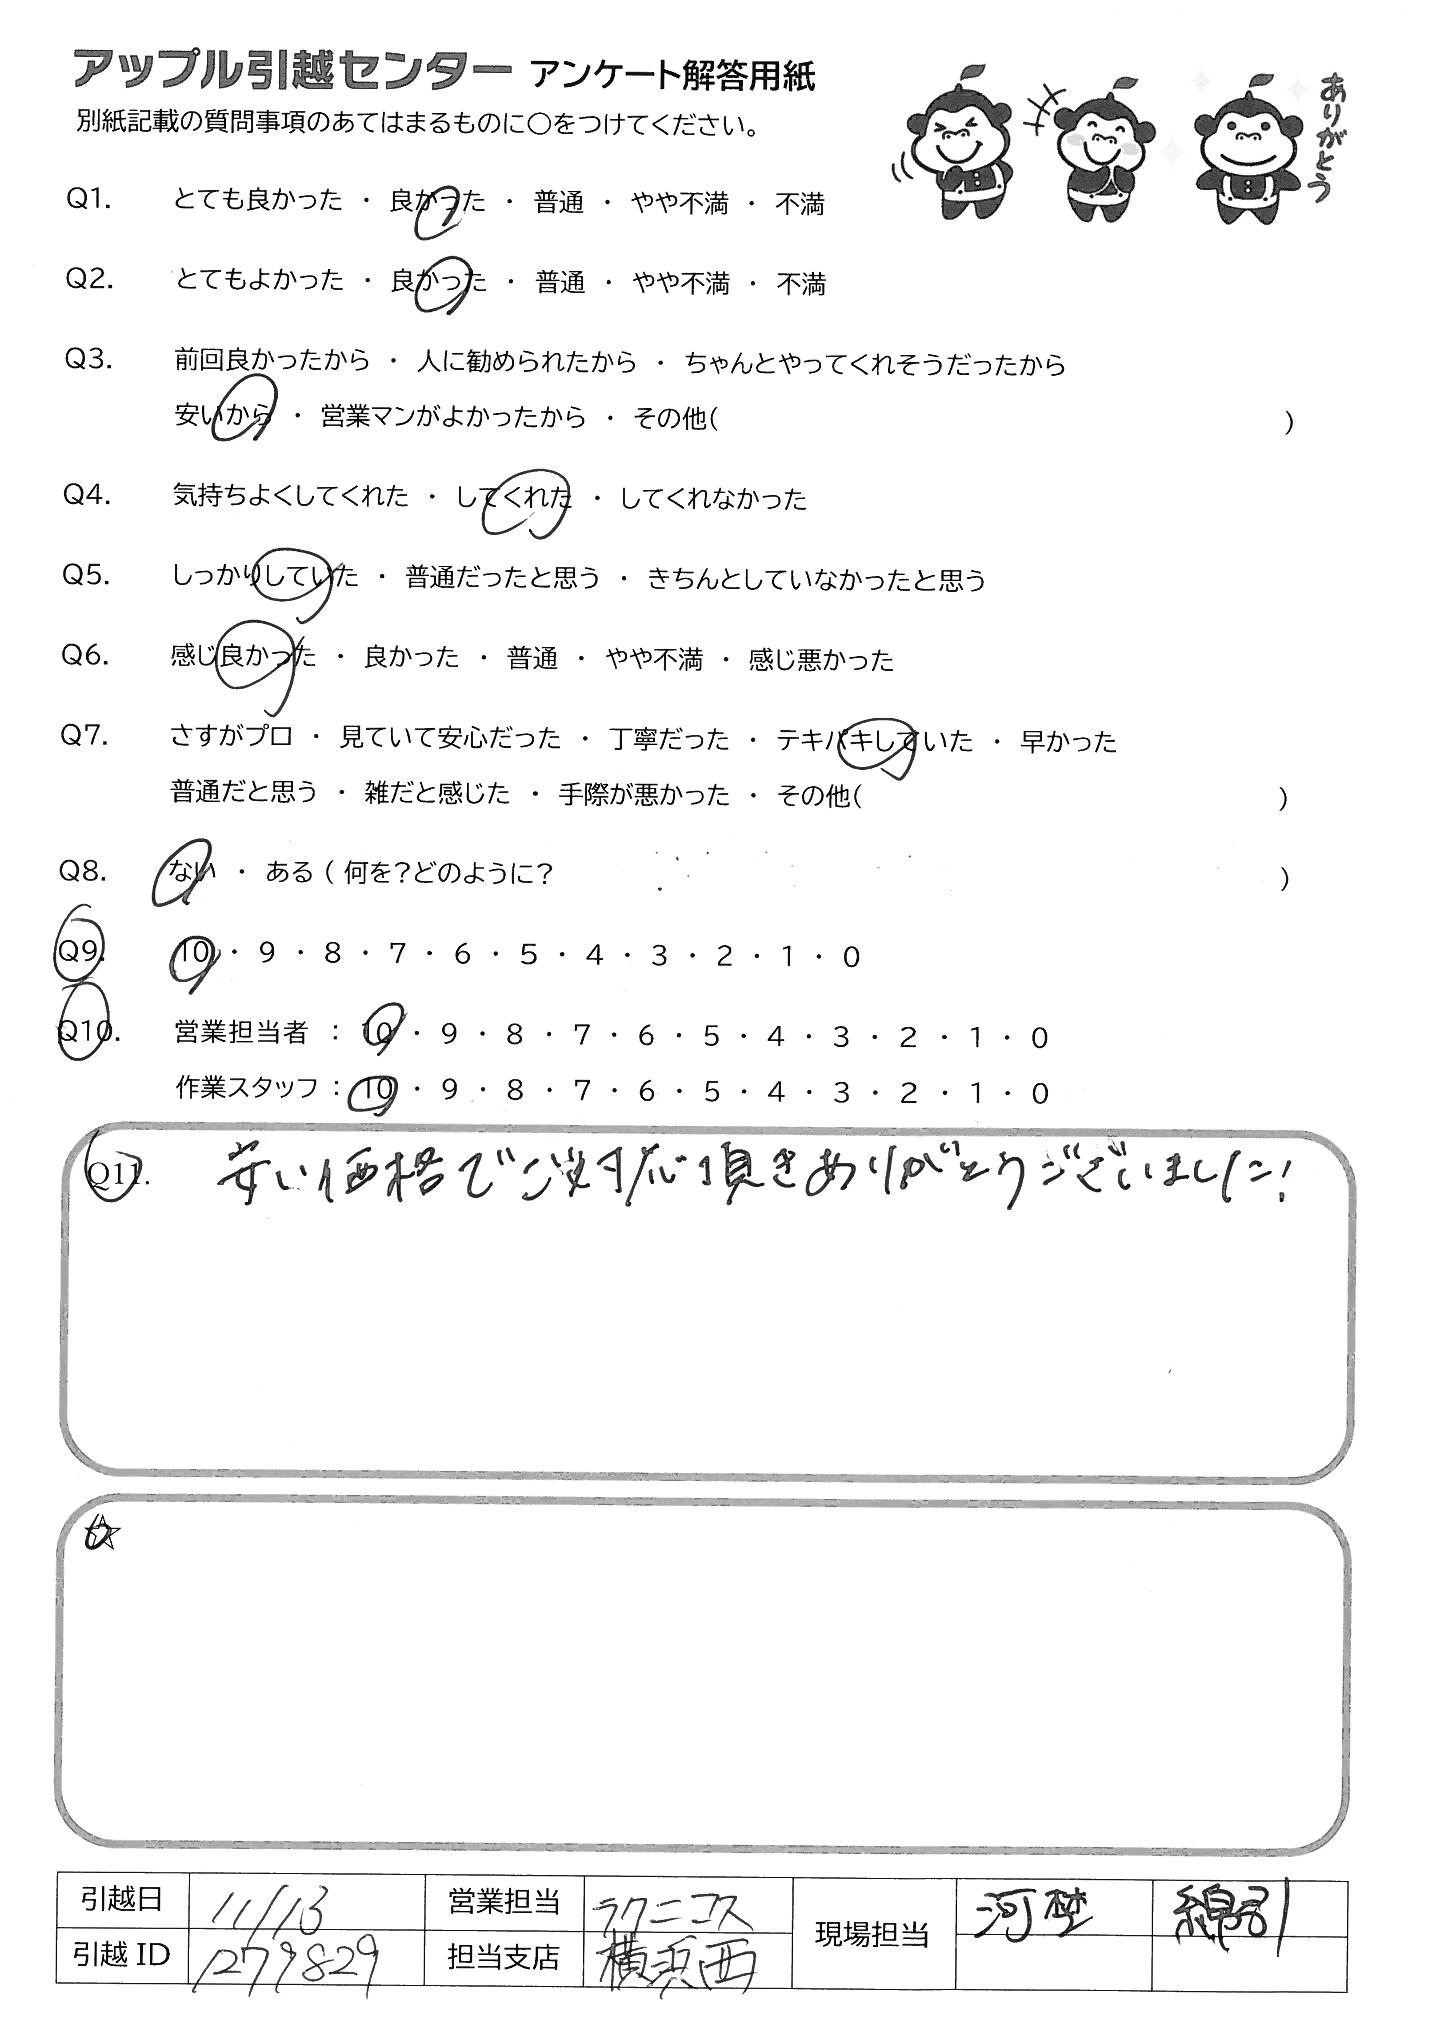 アップル引越センター アンケート解答用紙
別紙記載の質問事項のあてはまるものに○をつけてください。
ありがとう
Q1. とても良かった ・ 良かった ・ 普通 ・ やや不満 ・ 不満
Q2. とてもよかった ・ 良かった ・ 普通 ・ やや不満 ・ 不満
Q3. 前回良かったから ・ 人に勧められたから ・ ちゃんとやってくれそうだったから
安いから ・ 営業マンがよかったから ・ その他( )
Q4. 気持ちよくしてくれた ・ してくれた ・ してくれなかった
Q5. しっかりしていた ・ 普通だったと思う ・ きちんとしていなかったと思う
Q6. 感じ良かった ・ 良かった ・ 普通 ・ やや不満 ・ 感じ悪かった
Q7. さすがプロ ・ 見ていて安心だった ・ 丁寧だった ・ テキパキしていた ・ 早かった
普通だと思う ・ 雑だと感じた ・ 手際が悪かった ・ その他( )
Q8. ない ・ ある ( 何を?どのように? )
Q9. 10 ・ 9 ・ 8 ・ 7 ・ 6 ・ 5 ・ 4 ・ 3 ・ 2 ・ 1 ・ 0
Q10. 営業担当者 : 10 ・ 9 ・ 8 ・ 7 ・ 6 ・ 5 ・ 4 ・ 3 ・ 2 ・ 1 ・ 0
作業スタッフ : 10 ・ 9 ・ 8 ・ 7 ・ 6 ・ 5 ・ 4 ・ 3 ・ 2 ・ 1 ・ 0
Q11. 安い価格でご対応頂きありがとうございました!
☆
引越日 11/13 営業担当 ラクニコス 現場担当 河埜 綿引
引越ID 1279829 担当支店 横浜西